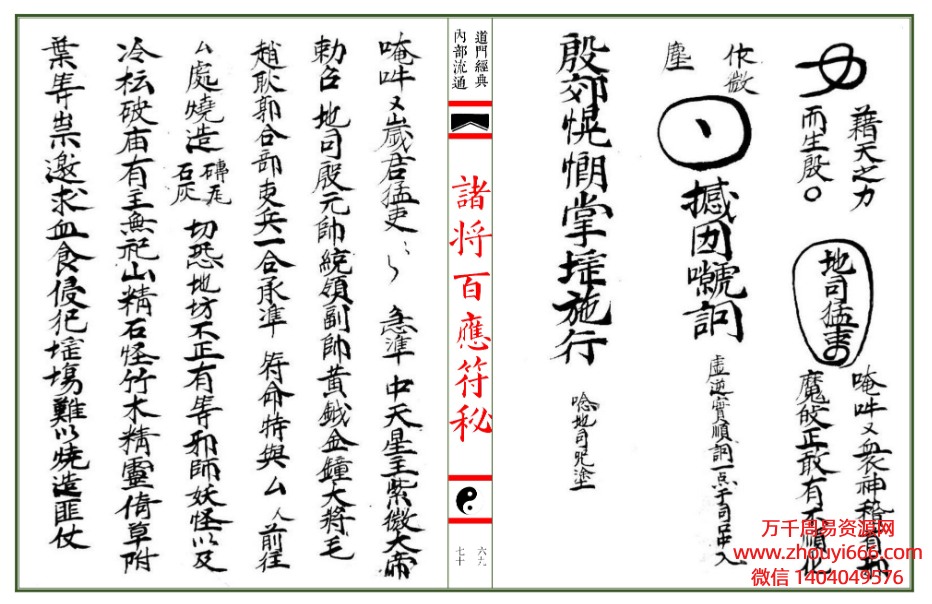 藉天之力
而生殷
地司猛吏
唵吽又𥙿神稽首
魔皈正敢有不順化
依微
塵
撼団囐訶
虛逆實順訶一点于司口中入
殷郊愰惘掌𡋯施行
唸地司咒塗
道門經典
內部流通
諸将百應符秘
六九
七十
唵吽又嵗君猛吏
急準 中天星主紫微大帝
勅召 地司殷元帥統領副帥黄鉞金鐘大將毛
趙耿郭合部吏兵一合承準 符命特與厶人前往
厶處燒造磚瓦石灰 切恐地坊不正有等邪師妖怪以及
冷坛破庙有主無祀山精石怪竹木精靈倚草附
葉等祟邀求血食侵犯塲難以燒造匪仗
万千周易资源网
www.zhouyi666.com
微信 1404049576